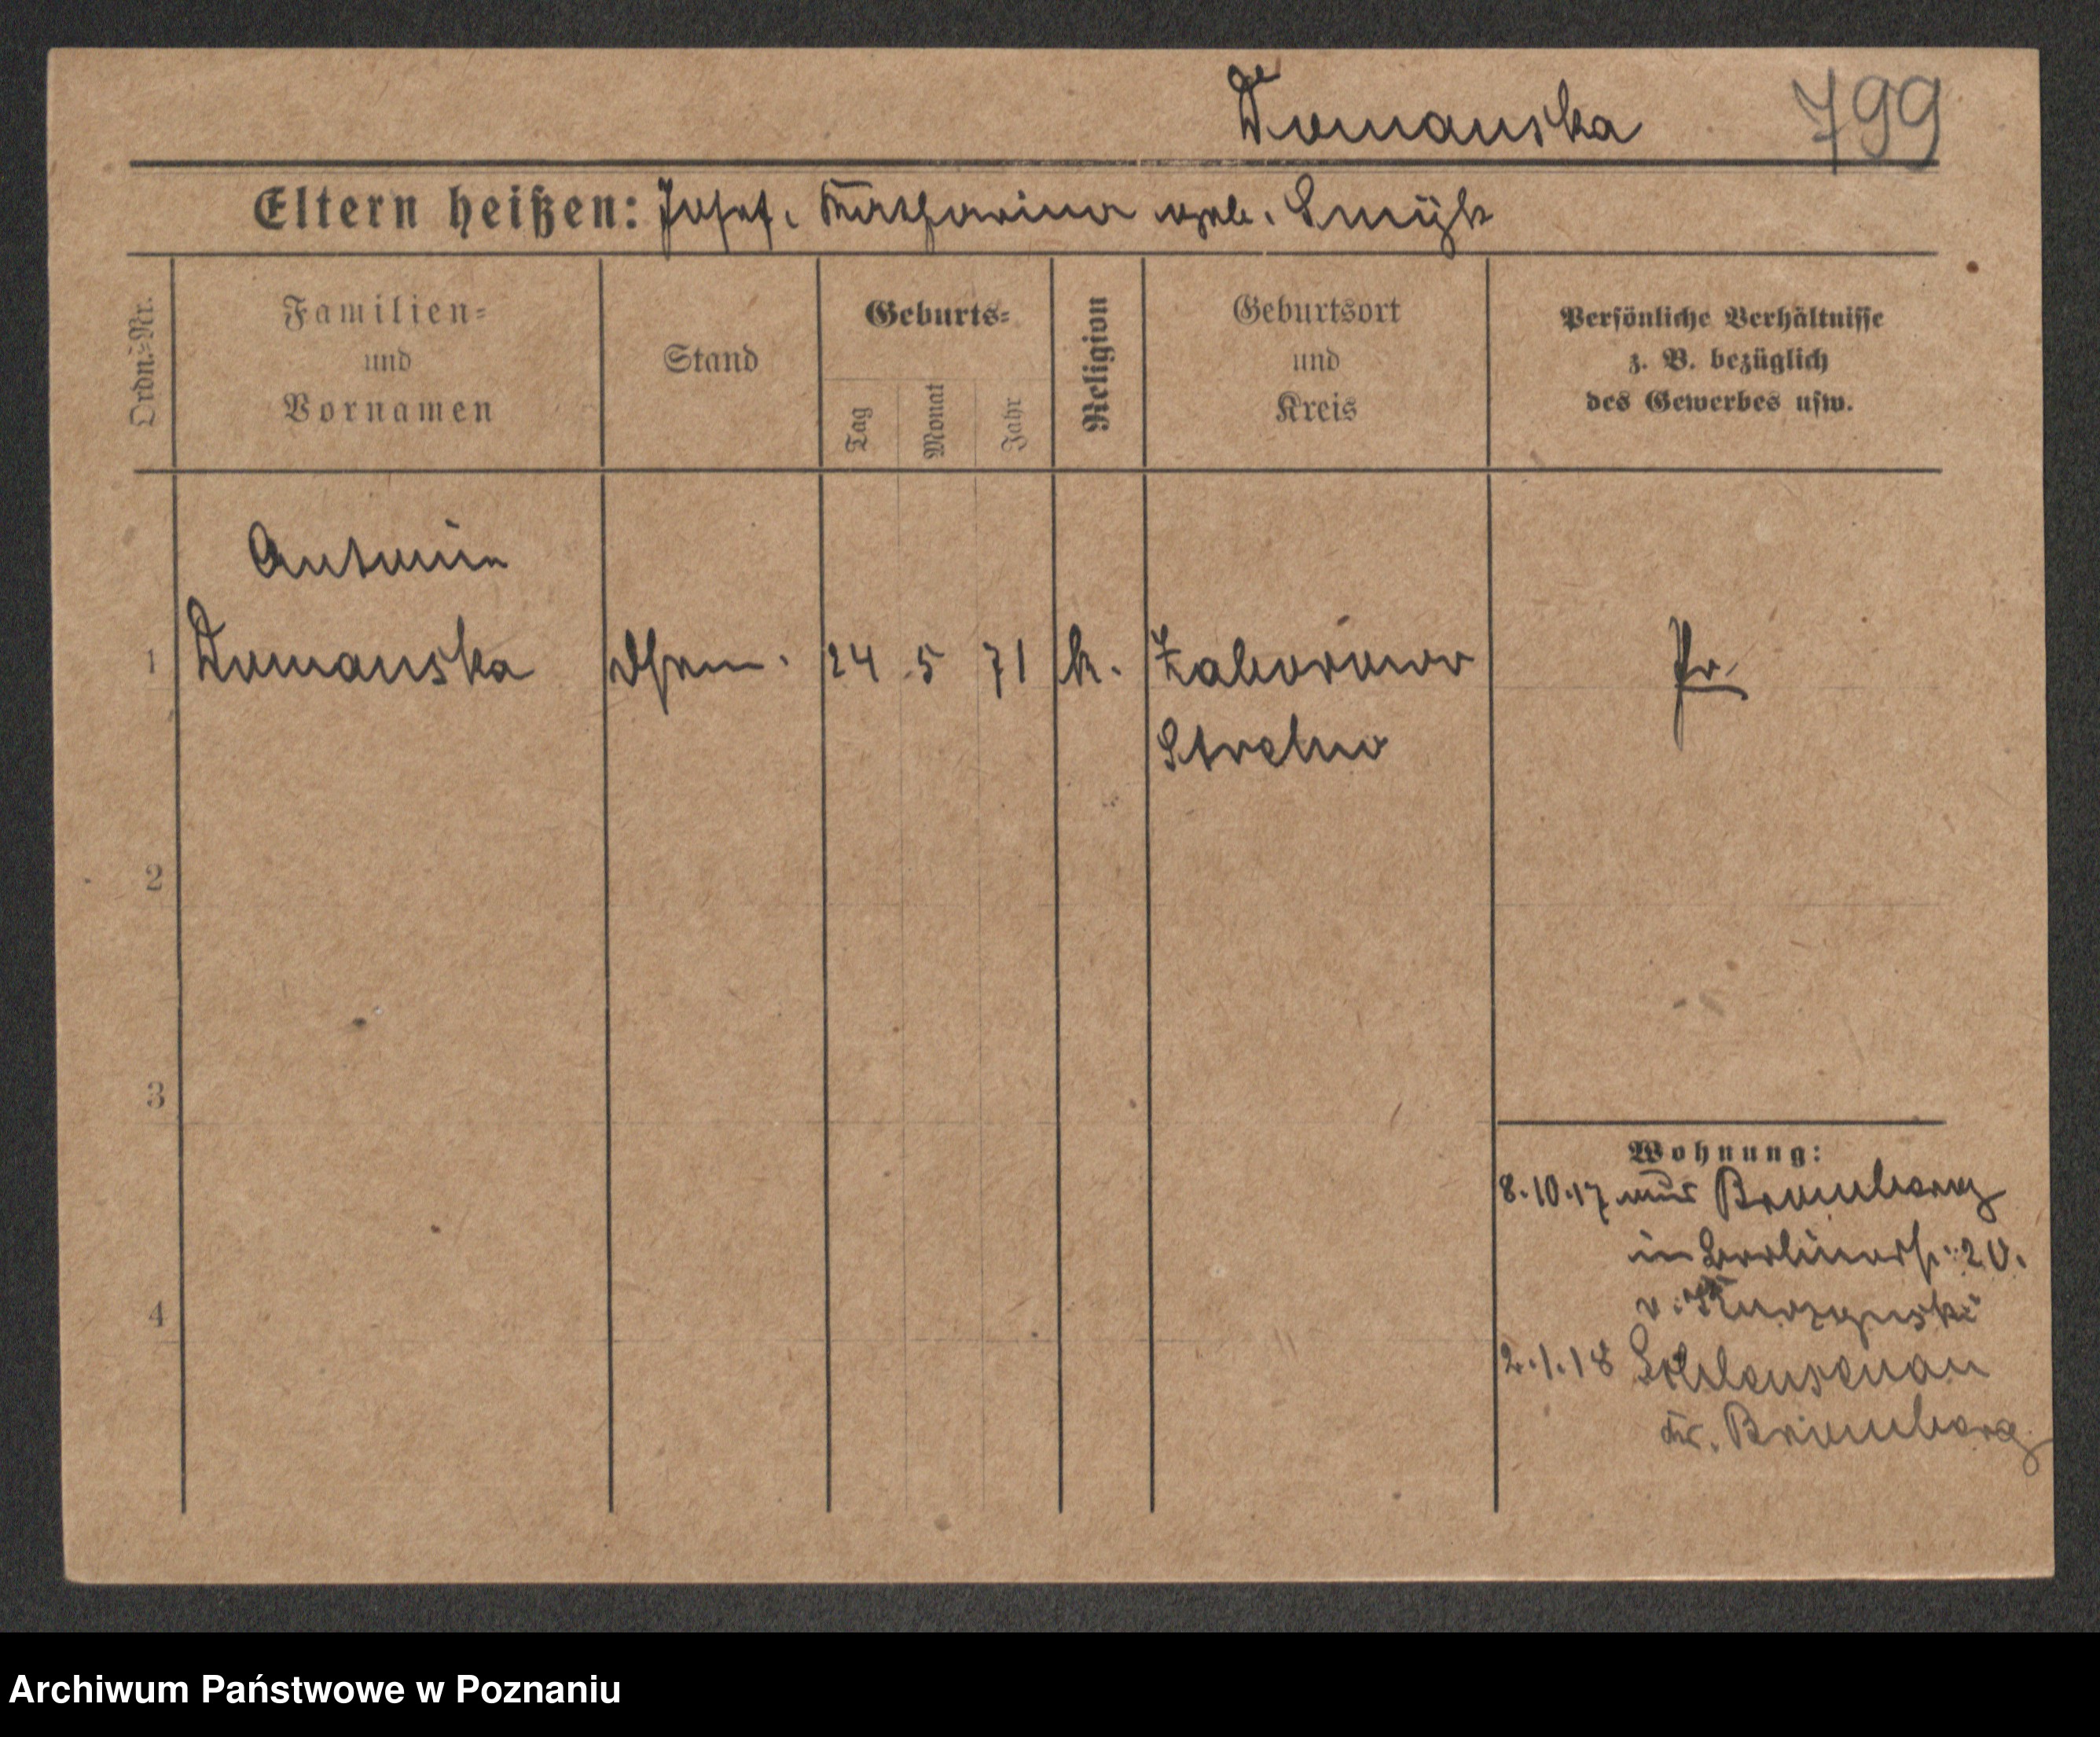 Domanska 799
Eltern heißen: Josef. Katharina geb. Smyk
Ordn.-Nr.
Familien-
und
Vornamen
Stand
Geburts-
Tag
Monat
Jahr
Religion
Geburtsort
und
Kreis
Persönliche Verhältnisse
z. B. bezüglich
des Gewerbes usw.
Antonin
1 Domanska 24 5 71 k. Zaborowo Pr.
Strelno
2
3
4
Wohnung:
8.10.17 aus Bromberg
in Berlinerstr. 20.
v.
2.1.18 Schleusenau
Kr. Bromberg
Archiwum Państwowe w Poznaniu